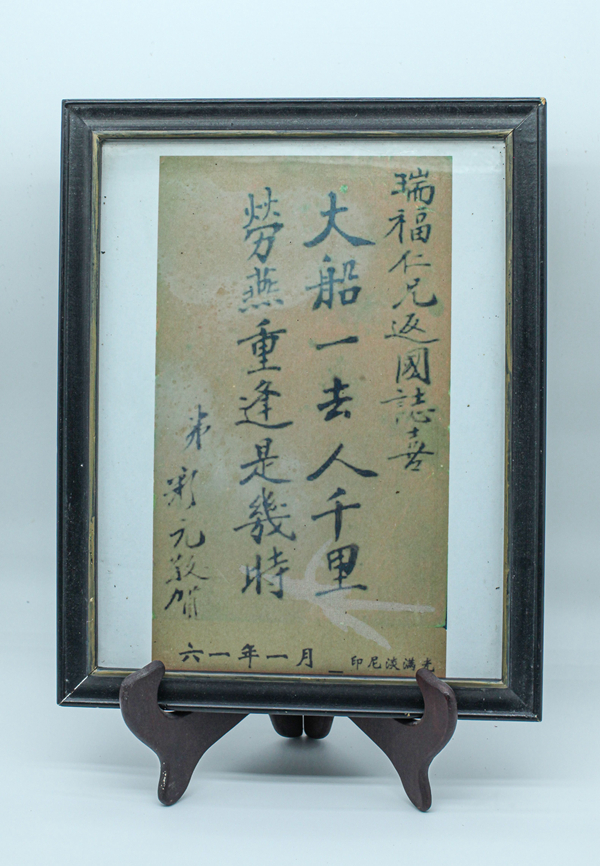 瑞福仁兄返國誌喜
大船一去人千里
勞燕重逢是幾時
弟元敬賀
六一年一月 印尼淡滿光